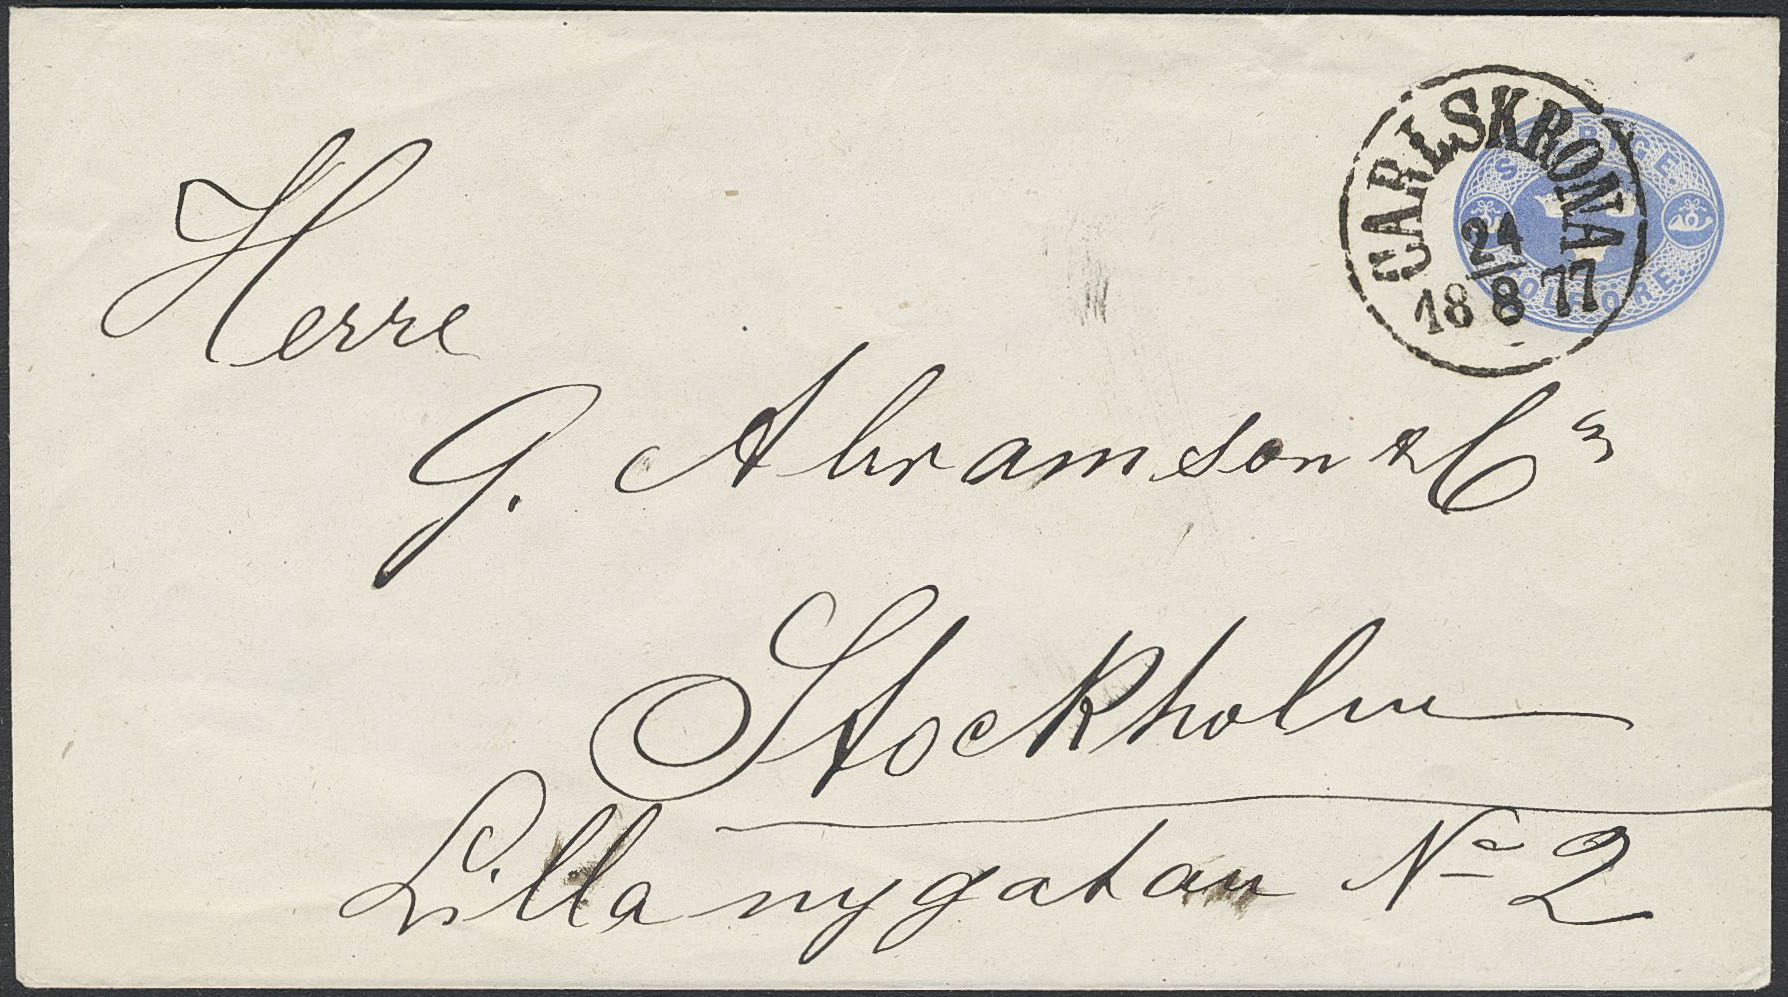 CARLSKRONA
24
18 8 77
SVERIGE.
TOLF ÖRE
Herre
G. Abramson & Co
Stockholm
Lilla nygatan No 2